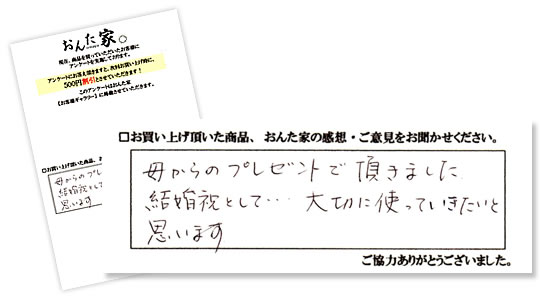 おんた家。
現在、商品を買っていただいたお客様に
アンケートを実施しております。
アンケートにお答え頂きますと、次回お買い上げ時に、
500円割引とさせていただきます！
このアンケートはおんた家
【お客様ギャラリー】に掲載させていただきます。
□お買い上げ頂いた商品、お
母からのプレ
結婚祝として
思います
□お買い上げ頂いた商品、おんた家の感想・ご意見をお聞かせください。
母からのプレゼントで頂きました
結婚祝として… 大切に使っていきたいと
思います
ご協力ありがとうございました。